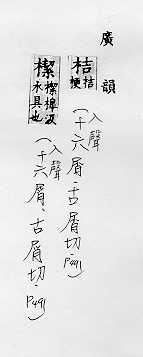 廣韻
桔 桔梗
(入聲 十六屑·古屑切·P491)
㮮 㮮槔汲水具也
(入聲 十六屑、古屑切·P491)